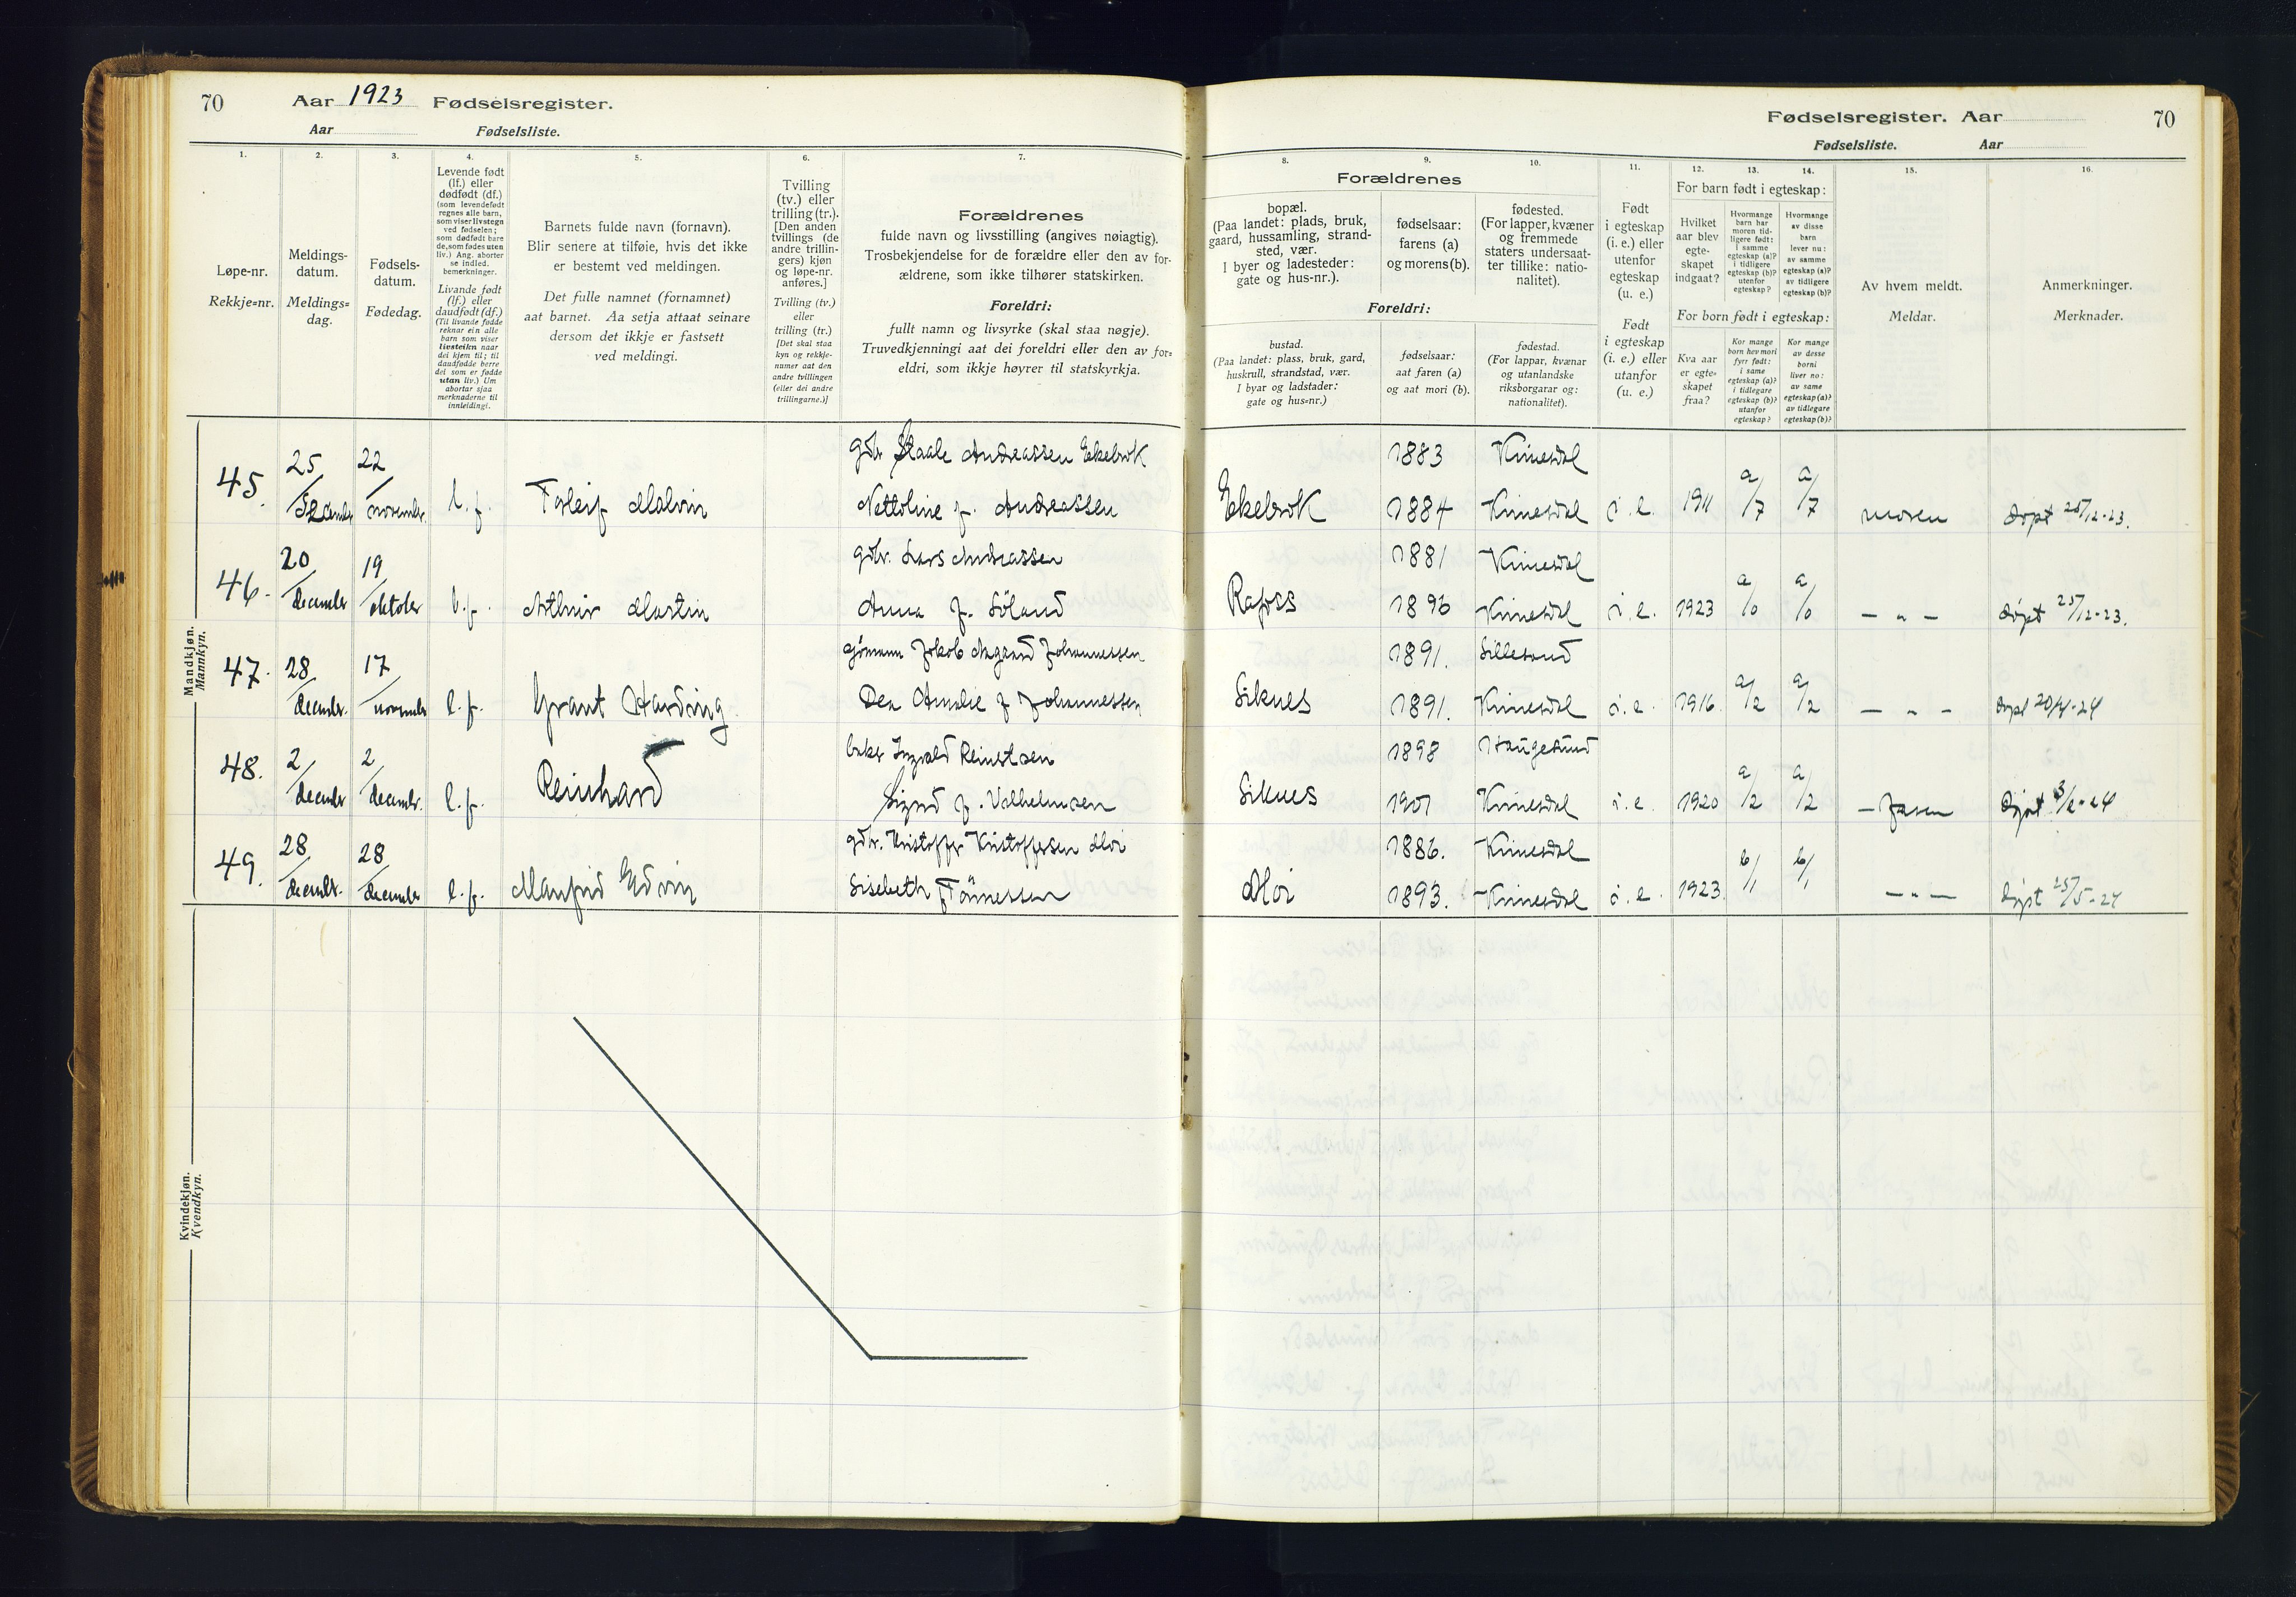 70 Aar 1923 Fødselsregister.
Aar Fødselsliste.
1. 2. 3. 4. 5. 6. 7.
Løpe-nr.
Rekkje=nr.
Meldings-
datum.
Meldings=
dag.
Fødsels-
datum.
Fødedag.
Levende født
(lf.) eller
dødfødt (df.)
(som levendefødt
regnes alle barn,
som viser livstegn
ved fødselen;
som dødfødt bare
de, som fødes uten
liv.) Ang. aborter
se indled.
bemerkninger.
Livande født
(lf.) eller
daudfødt (df.)
(Til livande fødde
reknar ein alle
barn som viser
livsteikn naar
dei kjem til; til
daudfødde berre
dei som er fødde
utan liv.) Um
abortar sjaa
merknaderne til
innleidingi.
Barnets fulde navn (fornavn).
Blir senere at tilføie, hvis det ikke
er bestemt ved meldingen.
Det fulle namnet (fornamnet)
aat barnet. Aa setja attaat seinare
dersom det ikkje er fastsett
ved meldingi.
Tvilling
(tv.) eller
trilling (tr.).
[Den anden
tvillings (de
andre trillin-
gers) kjøn
og løpe-nr.
anføres.]
Tvilling (tv.)
eller
trilling (tr.)
[Det skal staa
kyn og rekkje-
numer aat den
andre tvillingen
(eller dei andre
trillingarne.)]
Forældrenes
fulde navn og livsstilling (angives nøiagtig).
Trosbekjendelse for de forældre eller den av for-
ældrene, som ikke tilhører statskirken.
Foreldri:
fullt namn og livsyrke (skal staa nøgje).
Truvedkjenningi aat dei foreldri eller den av for=
eldri, som ikkje høyrer til statskyrkja.
Mandkjøn.
Mannkyn.
45. 25/december 22/november l.f. Torleif Malvin gdbr Staale Andreassen Ekebrok
Nettoline f. Andreassen
46. 20/december 19/oktober l.f. Arthur Martin gdbr. Lars Andreassen
Anna f. Søland
47. 28/decembr. 17/november l.f. Grant Harding sjømann Jakob Aagaard Johannessen
Dea Amalie f Johannessen
48. 2/decembr 2/decembr. l.f. Reinhard baker Ingvald Reinertsen
Sigrid f. Vilhelmsen
49. 28/decembr. 28/december l.f. Manfred Edvin gdbr. Kristoffer Kristoffersen Moi
Lisebeth f Tønnessen
Kvindekjøn.
Kvendkyn.
Fødselsregister. Aar 70
Fødselsliste. Aar
8. 9. 10. 11. 12. 13. 14. 15. 16.
Forældrenes
bopæl.
(Paa landet: plads, bruk,
gaard, hussamling, strand-
sted, vær.
I byer og ladesteder:
gate og hus-nr.).
fødselsaar:
farens (a)
og morens (b).
fødested.
(For lapper, kvæner
og fremmede
staters undersaat-
ter tillike: natio-
nalitet).
Foreldri:
bustad.
(Paa landet: plass, bruk, gard,
huskrull, strandstad, vær.
I byar og ladstader:
gate og hus=nr.)
fødselsaar:
aat faren (a)
og aat mori (b).
fødestad.
(For lappar, kvænar
og utanlandske
riksborgarar og:
nationalitet).
Født
i egteskap
(i. e.) eller
utenfor
egteskap
(u. e.)
Født
i egteskap
(i. e.) eller
utanfor
(u. e.)
For barn født i egteskap:
Hvilket
aar blev
egte-
skapet
indgaat?
Hvormange
barn har
moren tid-
ligere født:
i samme
egteskap (a)?
i tidligere
egteskap (b)?
utenfor
egteskap?
Hvormange
av disse
barn
lever nu:
av samme
egteskap (a)?
av tidligere
egteskap (b)?
For born født i egteskap:
Kva aar
er egte-
skapet
fraa?
Kor mange
born hev mori
fyrr født:
i same
egteskap (a)?
i tidlegare
egteskap (b)?
utanfor
egteskap?
Kor mange
av desse
borni
liver no:
av same
egteskap (a)?
av tidlegare
egteskap (b)?
Av hvem meldt.
Meldar.
Anmerkninger.
Merknader.
1883 Kvinesdal
Ekebrok 1884 Kvinesdal i. e. 1911 a/7 a/7 moren døpt 25/12-23.
1881 Kvinesdal
Rafoss 1896 Kvinesdal i. e. 1923 a/0 a/0 — „ — døpt 25/12-23.
1891. Lillesand
Liknes 1891. Kvinesdal i. e. 1916. a/2 a/2 — „ — døpt
1898 Haugesund
Liknes 1901 Kvinesdal i. e. 1920 a/2 a/2 — faren døpt 3/2-24
1886. Kvinesdal
Moi 1893. Kvinesdal i. e. 1923. b/1 b/1 — „ — døpt 25/5-24